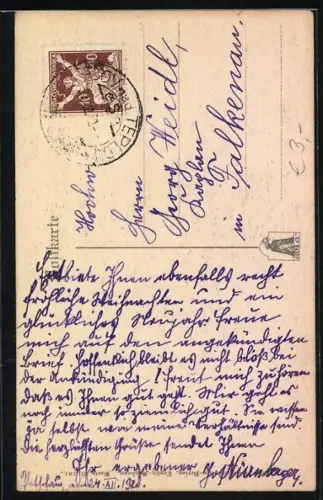 Hochw.
Herrn
Georg Weidl,
Kaplan
in Falkenau.
€ 3,-
Postkarte
TEPL
Entbiete Ihnen ebenfalls recht
fröhliche Weihnachten und ein
glückliches Neujahr. Freue
mich auf den angekündigten
Brief. Hoffentlich bleibt es nicht bloß bei
der Ankündigung! Freut mich zu hören
daß es Ihnen gut geht. Mir geht es
noch immer so ziemlich gut. Sie wissen
ja selbst wie meine Verhältnisse sind.
Die herzlichsten Grüße sendet Ihnen
Ihr ergebener
am 24. XII. 1920.